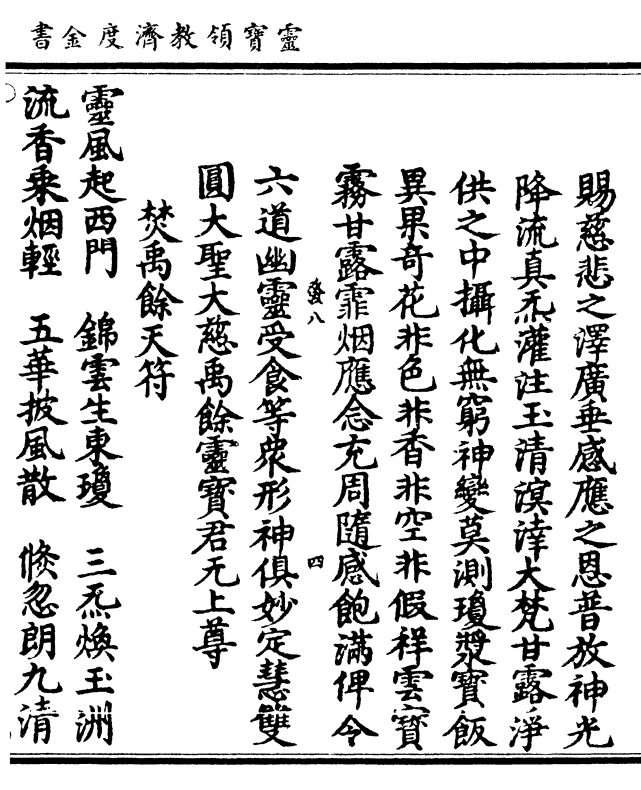 靈寶領教濟度金書
賜慈悲之澤廣垂感應之恩普放神光
降流真炁灌注玉清溟涬大梵甘露淨
供之中攝化無窮神變莫測瓊漿寶飯
異果奇花非色非香非空非假祥雲寶
霧甘露霏烟應念充周隨感飽滿俾令
八
四
六道幽靈受食等衆形神俱妙定慧雙
圓大聖大慈禹餘靈寶君无上尊
焚禹餘天符
靈風起西門 錦雲生東瓊 三炁煥玉洲
流香乗烟輕 五華披風散 倐忽朗九清